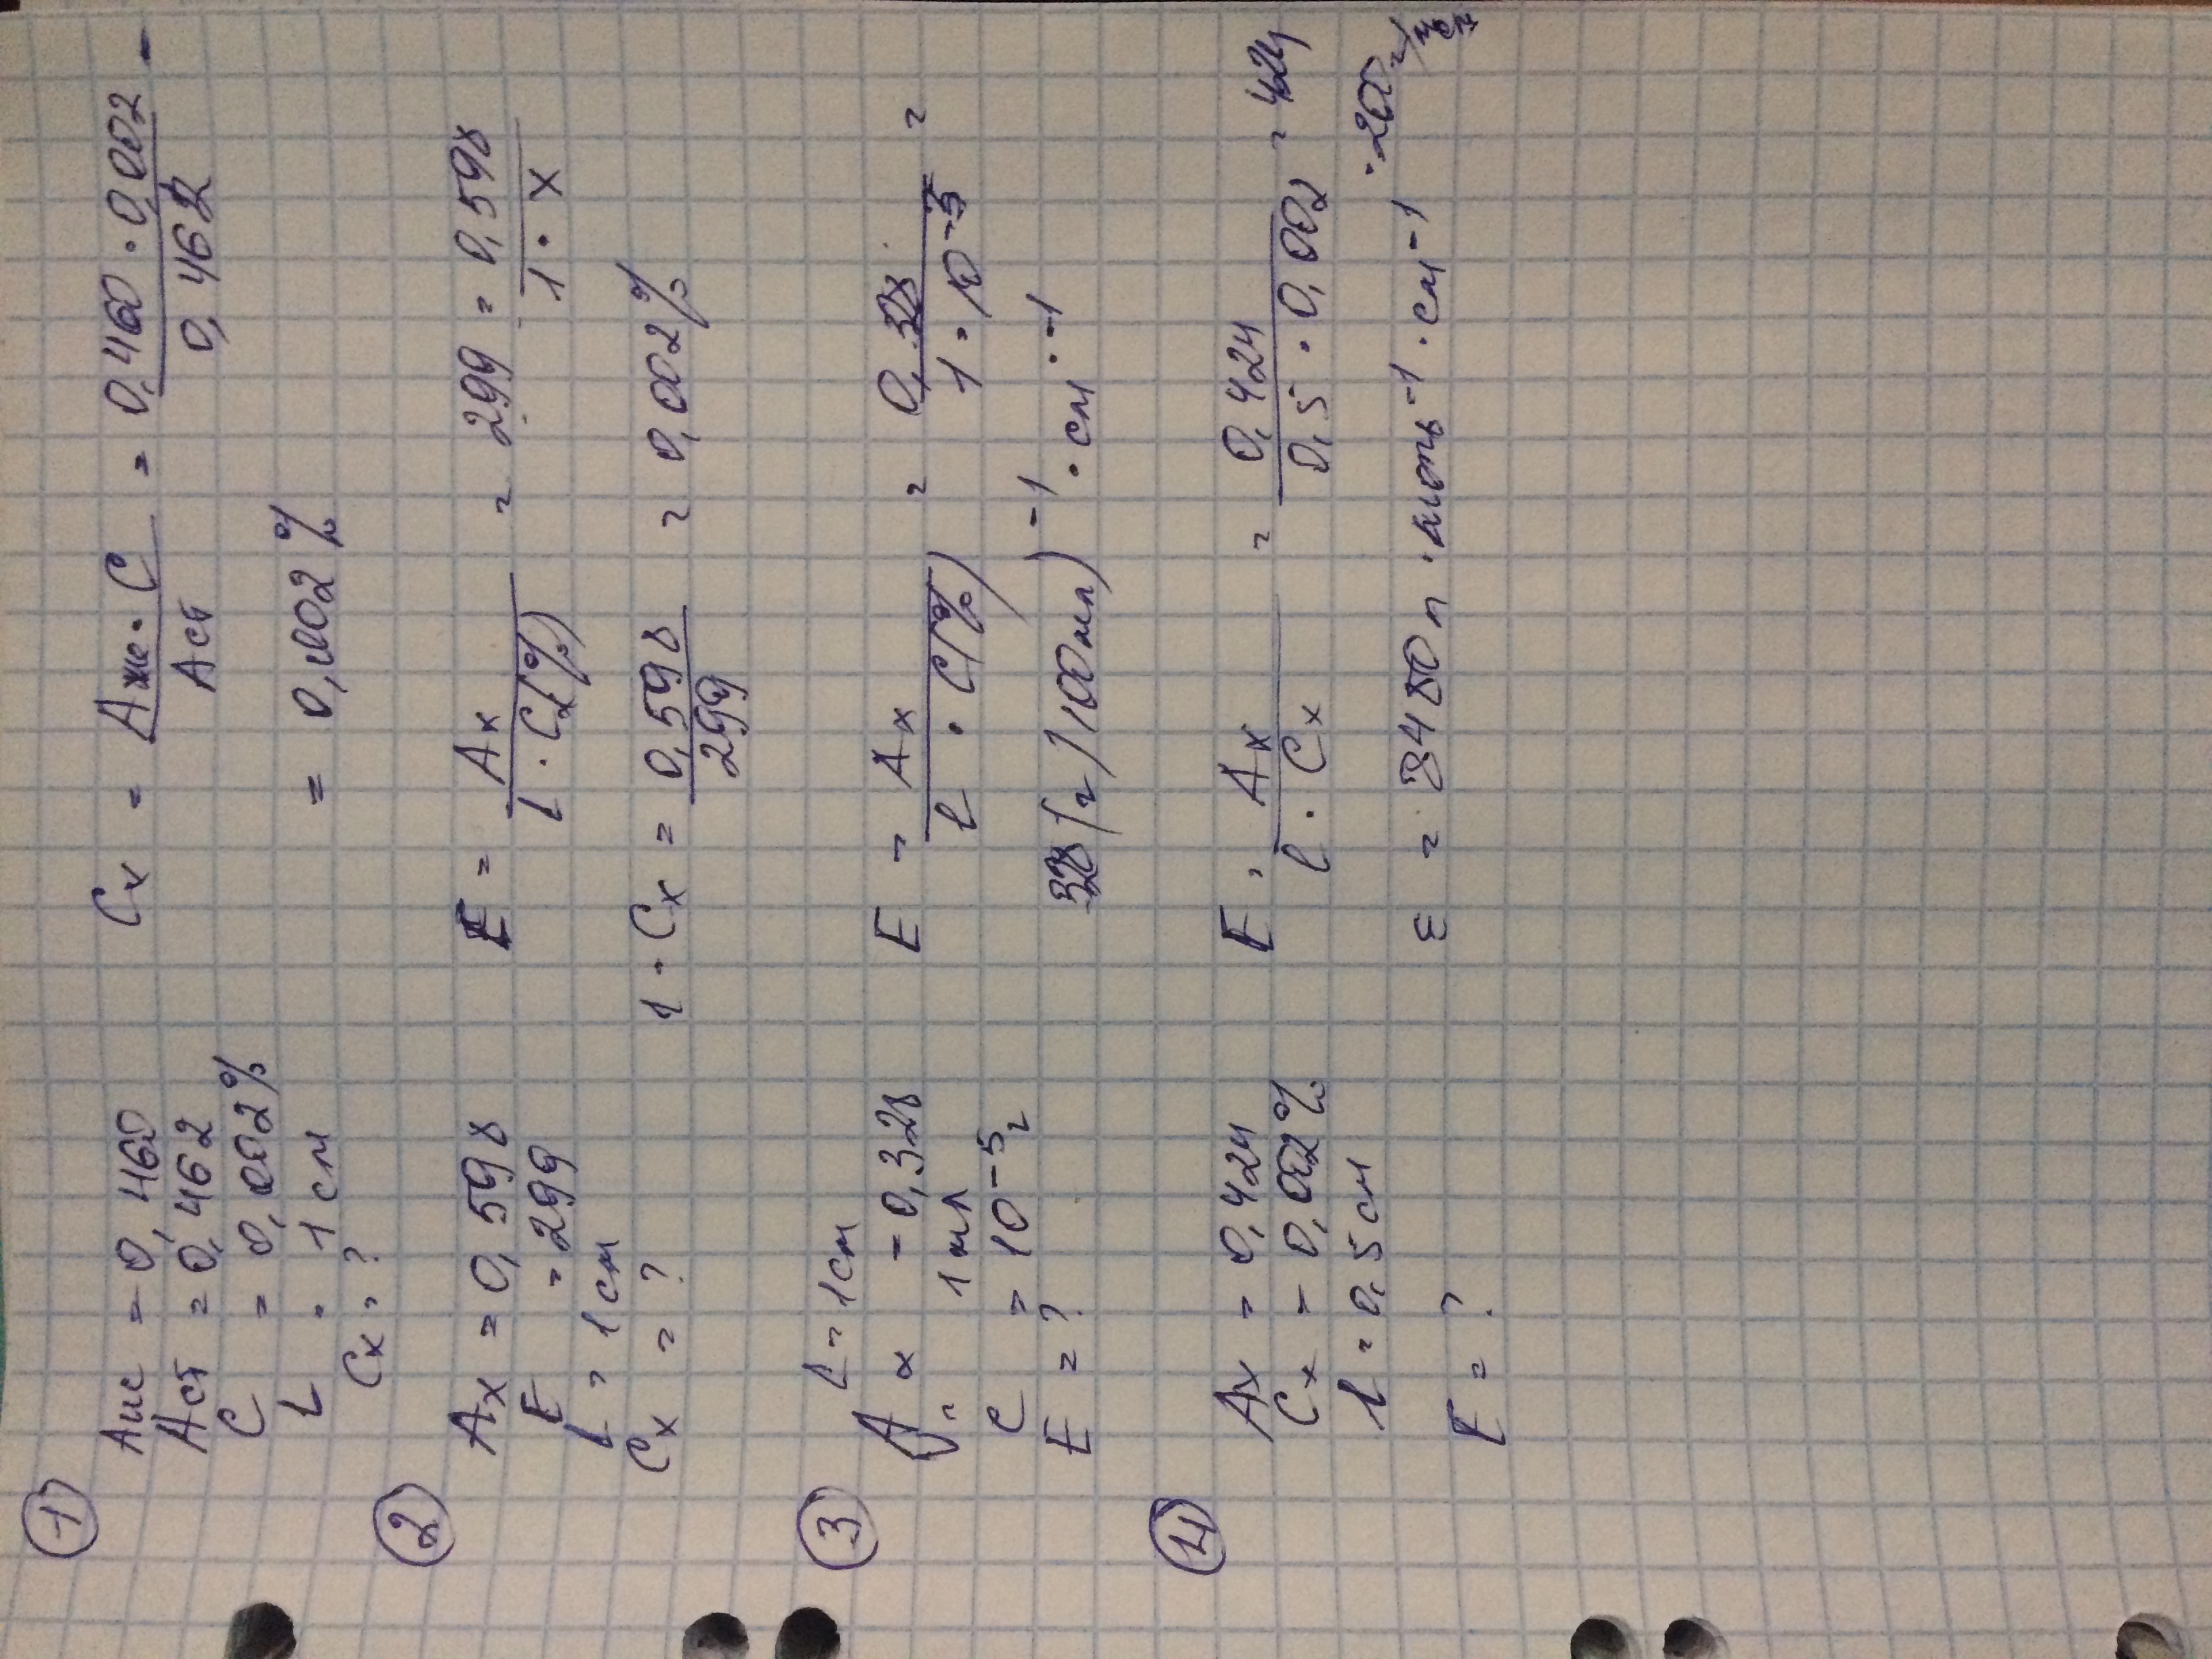 1
Аис = 0,460
Аст = 0,462
C = 0,002%
L = 1 см
Cx = ?
Cx = Аис · C / Аст = 0,460 · 0,002 / 0,462 =
= 0,002%
2
Ax = 0,598
E = 299
L = 1 см
Cx = ?
E = Ax / l · Cx(%) = 299 = 0,598 / 1 · X
1 · Cx = 0,598 / 299 = 0,002%
3
L = 1 см
Ax = 0,328
V = 1 мл
C = 10⁻⁵г
E = ?
E = Ax / l · C(%) = 0,328 / 1 · 10⁻³ =
328 (г/100мл)⁻¹ · см⁻¹
4
Ax = 0,424
Cx = 0,002%
l = 0,5 см
E = ?
E = Ax / l · Cx = 0,424 / 0,5 · 0,002 = 424
· 200 г/моль
ε = 8480 л · моль⁻¹ · см⁻¹